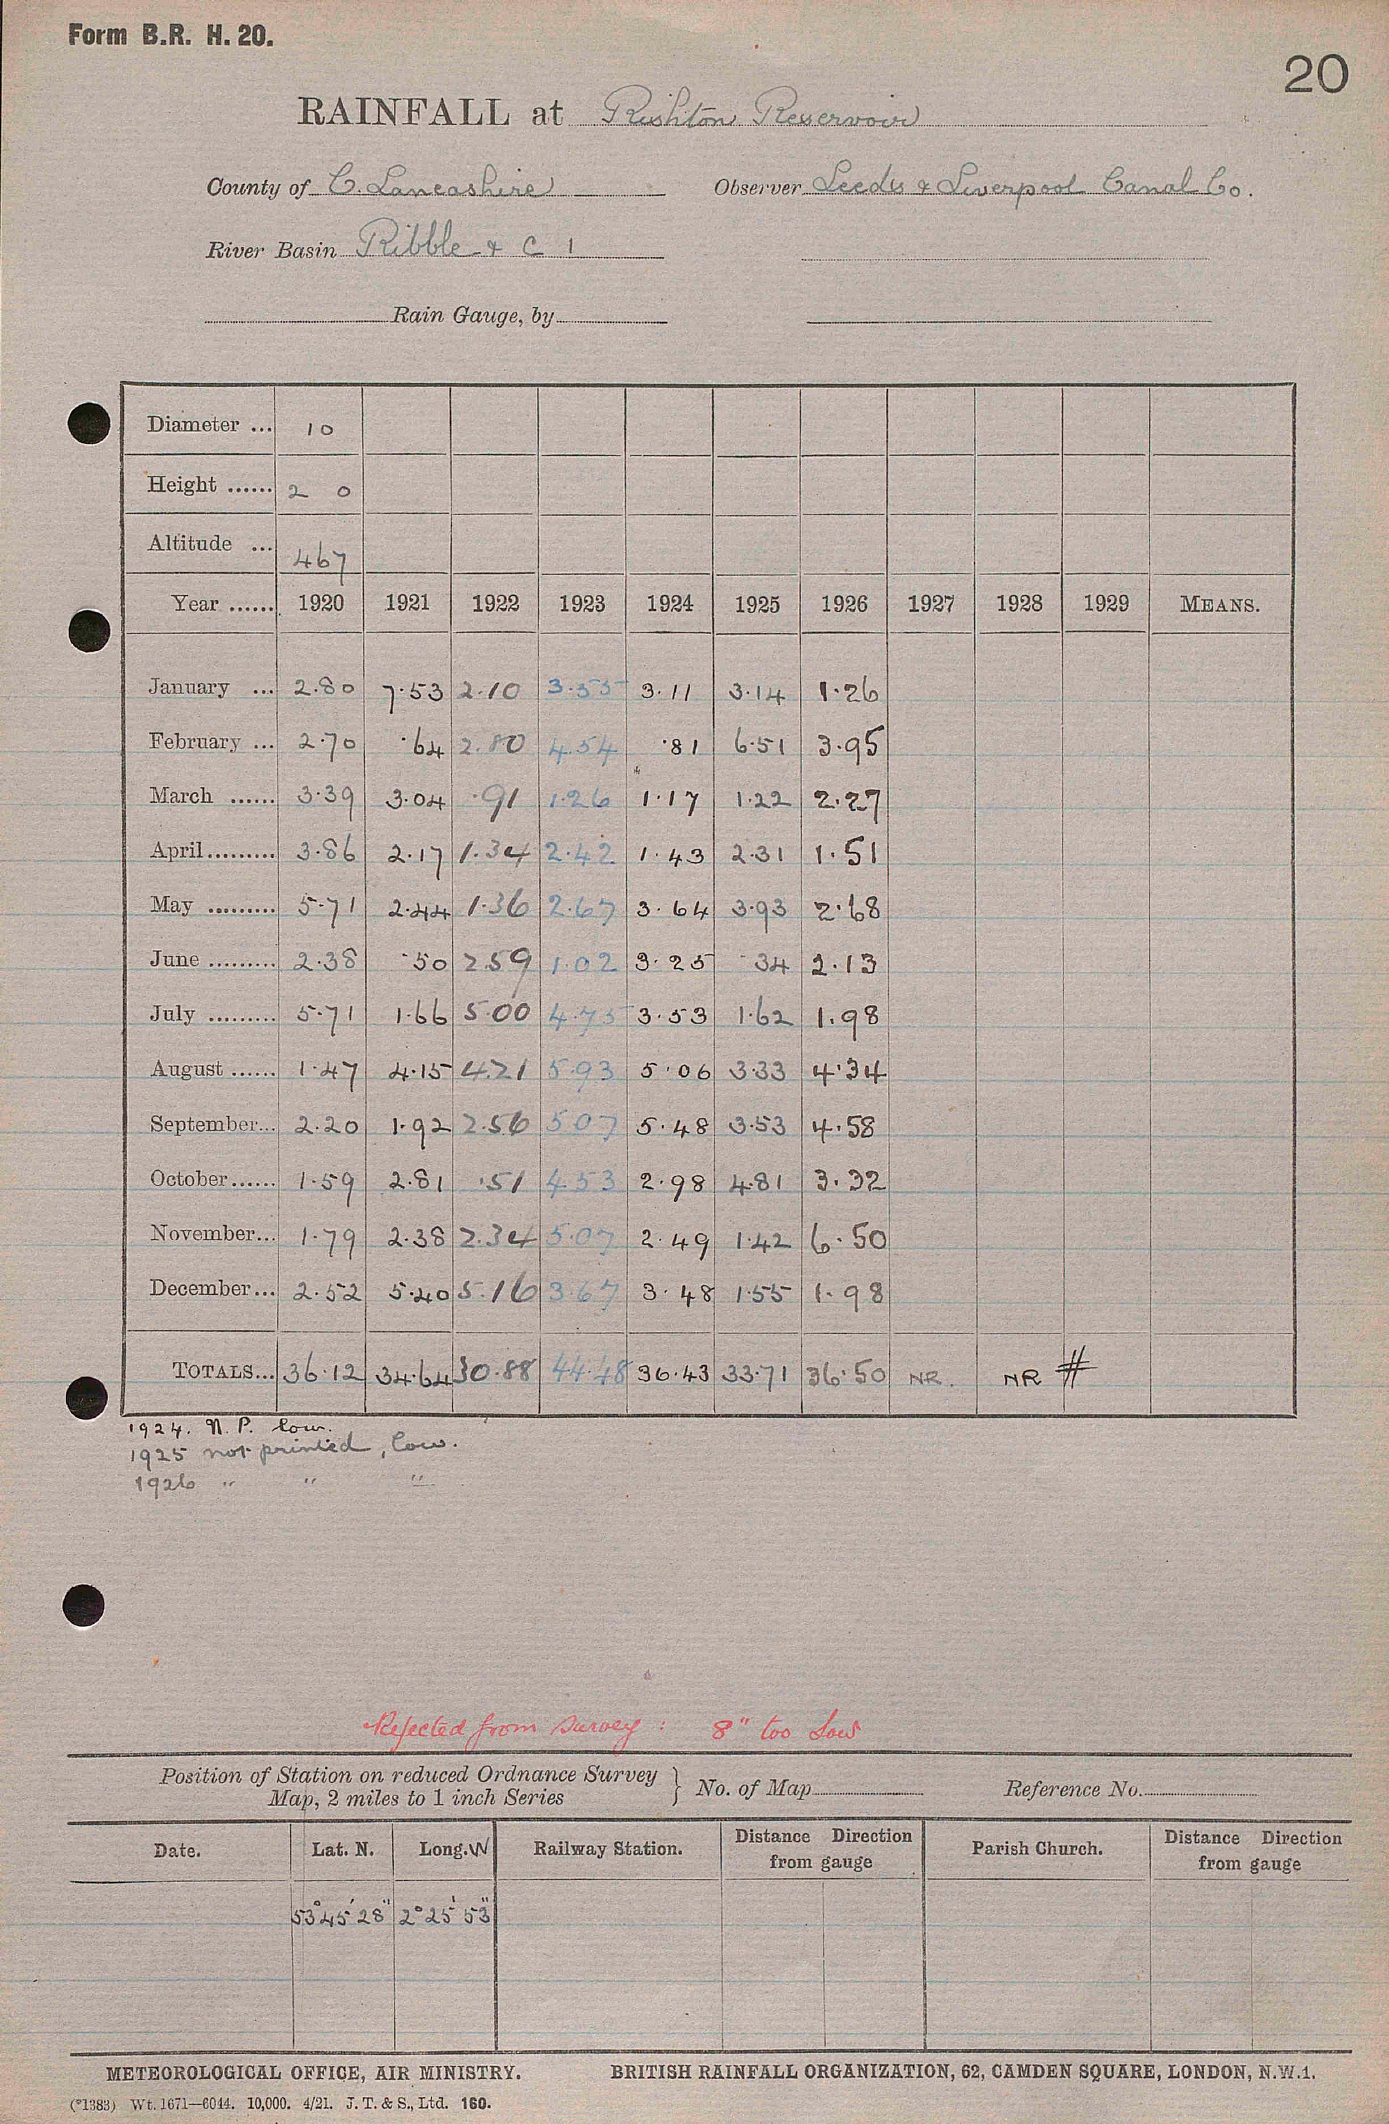 Form B.R. H. 20.
20
RAINFALL at Rishton Reservoir
County of C. Lancashire Observer Leeds & Liverpool Canal Co.
River Basin Ribble & C 1
Rain Gauge, by
Diameter ... 10
Height ...... 2 0
Altitude ... 467
Year ...... 1920 1921 1922 1923 1924 1925 1926 1927 1928 1929 MEANS.
January ... 2.80 7.53 2.10 3.55 3.11 3.14 1.26
February ... 2.70 .64 2.80 4.54 .81 6.51 3.95
March ...... 3.39 3.04 .91 1.26 1.17 1.22 2.27
April......... 3.86 2.17 1.34 2.42 1.43 2.31 1.51
May ......... 5.71 2.44 1.36 2.67 3.64 3.93 2.68
June ......... 2.38 .50 2.59 1.02 3.25 .34 2.13
July ......... 5.71 1.66 5.00 4.75 3.53 1.62 1.98
August ...... 1.47 4.15 4.21 5.93 5.06 3.33 4.34
September... 2.20 1.92 2.56 5.07 5.48 3.53 4.58
October...... 1.59 2.81 .51 4.53 2.98 4.81 3.32
November... 1.79 2.38 2.34 5.07 2.49 1.42 6.50
December... 2.52 5.40 5.16 3.67 3.48 1.55 1.98
TOTALS... 36.12 34.64 30.88 44.48 36.43 33.71 36.50 NR. NR #
1924. N.P. low.
1925 not printed, low.
1926 " " "
Rejected from survey : 8" too low
Position of Station on reduced Ordnance Survey Map, 2 miles to 1 inch Series } No. of Map Reference No.
Date. Lat. N. Long. W Railway Station. Distance Direction from gauge Parish Church. Distance Direction from gauge
53° 45' 28" 2° 25' 53"
METEOROLOGICAL OFFICE, AIR MINISTRY. BRITISH RAINFALL ORGANIZATION, 62, CAMDEN SQUARE, LONDON, N.W.1.
(*1383) Wt. 1671—6044. 10,000. 4/21. J. T. & S., Ltd. 160.